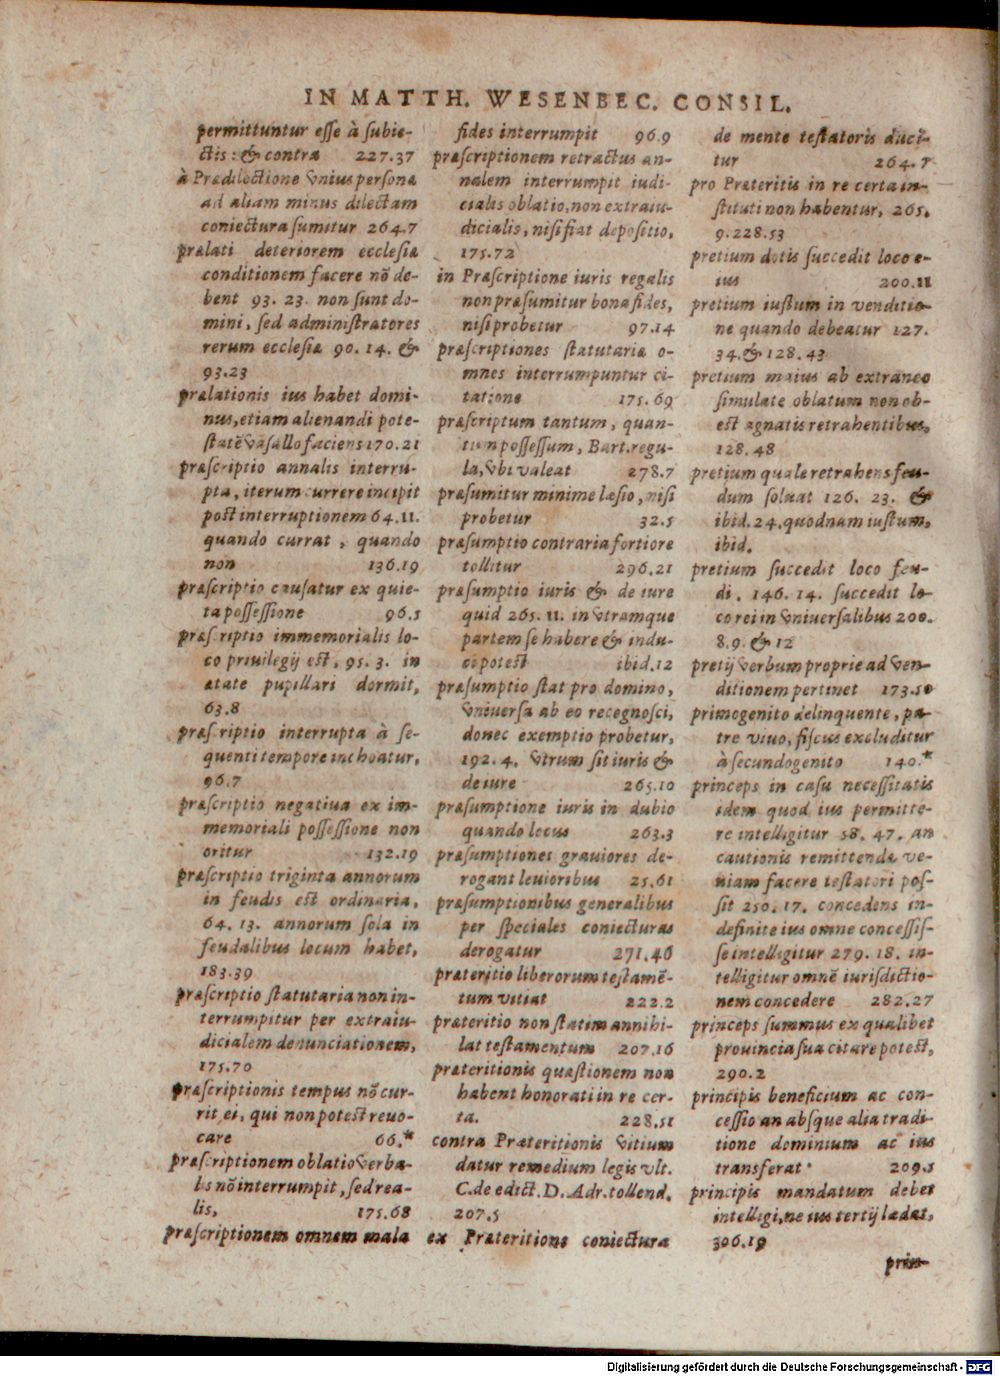 IN MATTH. WESENBEC. CONSIL.
permittuntur esse à subie-
ctis: & contra 227.37
à Prædilectione vnius personæ
ad aliam minus dilectam
coniectura sumitur 264.7
prælati deteriorem ecclesiæ
conditionem facere nō de-
bent 93. 23. non sunt do-
mini, sed administratores
rerum ecclesiæ 90. 14. &
93.23
prælationis ius habet domi-
nus, etiam alienandi pote-
statē vasallo faciens 170.21
præscriptio annalis interru-
pta, iterum currere incipit
post interruptionem 64.11.
quando currat, quando
non 136.19
præscriptio causatur ex quie-
ta possessione 96.5
præscriptio immemorialis lo-
co priuilegij est, 95. 3. in
ætate pupillari dormit,
63.8
præscriptio interrupta à se-
quenti tempore inchoatur,
96.7
præscriptio negatiua ex im-
memoriali possessione non
oritur 132.19
præscriptio triginta annorum
in feudis est ordinaria,
64. 13. annorum sola in
feudalibus locum habet,
183.39
præscriptio statutaria non in-
terrumpitur per extraiu-
dicialem denunciationem,
175.70
præscriptionis tempus nō cur-
rit ei, qui non potest reuo-
care 66.*
præscriptionem oblatio verba-
lis nō interrumpit, sed rea-
lis, 175.68
præscriptionem omnem mala
fides interrumpit 96.9
præscriptionem retractus an-
nalem interrumpit iudi-
cialis oblatio, non extraiu-
dicialis, nisi fiat depositio,
175.72
in Præscriptione iuris regalis
non præsumitur bona fides,
nisi probetur 97.14
præscriptiones statutariæ o-
mnes interrumpuntur ci-
tatione 175.69
præscriptum tantum, quan-
tum possessum, Bart. regu-
la, vbi valeat 278.7
præsumitur minime læsio, nisi
probetur 32.5
præsumptio contraria fortiore
tollitur 296.21
præsumptio iuris & de iure
quid 265. 11. in vtramque
partem se habere & indu-
ci potest ibid.12
præsumptio stat pro domino,
vniuersa ab eo recognosci,
donec exemptio probetur,
192. 4. vtrum sit iuris &
de iure 265.10
præsumptione iuris in dubio
quando locus 263.3
præsumptiones grauiores de-
rogant leuioribus 25.61
præsumptionibus generalibus
per speciales coniecturas
derogatur 271.46
præteritio liberorum testamē-
tum vitiat 222.2
præteritio non statim annihi-
lat testamentum 207.16
præteritionis quæstionem non
habent honorati in re cer-
ta. 228.51
contra Præteritionis vitium
datur remedium legis vlt.
C. de edict. D. Adr. tollend.
207.5
ex Præteritione coniectura
de mente testatoris duci-
tur 264.7
pro Præteritis in re certa in-
stituti non habentur, 265.
9. 228.53
pretium dotis succedit loco e-
ius 200.11
pretium iustum in venditio-
ne quando debeatur 127.
34. & 128.43
pretium maius ab extraneo
simulate oblatum non ob-
est agnatis retrahentibus,
128.48
pretium quale retrahens feu-
dum soluat 126. 23. &
ibid. 24. quodnam iustum,
ibid.
pretium succedit loco feu-
di. 146. 14. succedit lo-
co rei in vniuersalibus 200.
8.9. & 12
pretij verbum proprie ad ven-
ditionem pertinet 173.50
primogenito delinquente, pa-
tre viuo, fiscus excluditur
à secundogenito 140.*
princeps in casu necessitatis
idem quod ius permitte-
re intelligitur 58. 47. an
cautionis remittendæ ve-
niam facere testatori pos-
sit 250. 17. concedens in-
definite ius omne concessis-
se intelligitur 279. 18. in-
telligitur omnē iurisdictio-
nem concedere 282.27
princeps summus ex qualibet
prouincia sua citare potest,
290.2
principis beneficium ac con-
cessio an absque alia tradi-
tione dominium ac ius
transferat 209.5
principis mandatum debet
intelligi, ne ius tertij lædat,
306.19
prin-
Digitalisierung gefördert durch die Deutsche Forschungsgemeinschaft - DFG